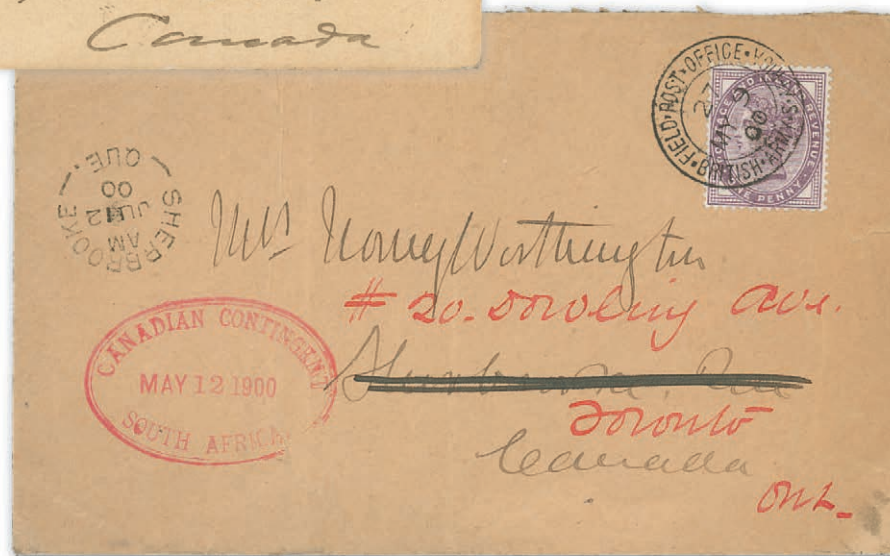 Canada
FIELD·POST·OFFICE·
·BRITISH·ARMY·S·
27
MY 9
00
POSTAGE AND INLAND REVENUE
ONE PENNY
SHERBROOKE
QUE.
AM
JU 12
00
Mrs Worthington
# 20. Dowling Ave.
Sherbrooke. Que
Toronto
Canada
Ont.
CANADIAN CONTINGENT
MAY 12 1900
SOUTH AFRICA